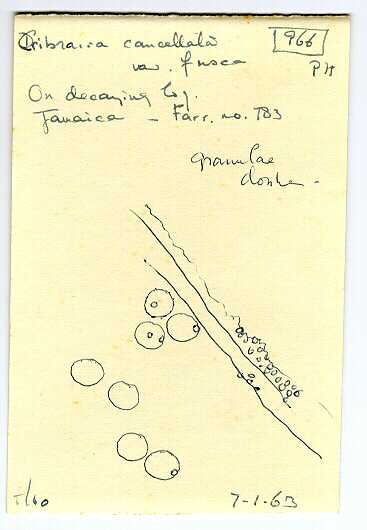 Cribraria cancellata
966
var. fusca
PH
On decaying log.
Jamaica - Farr. no. 783
granulae
7-1-63